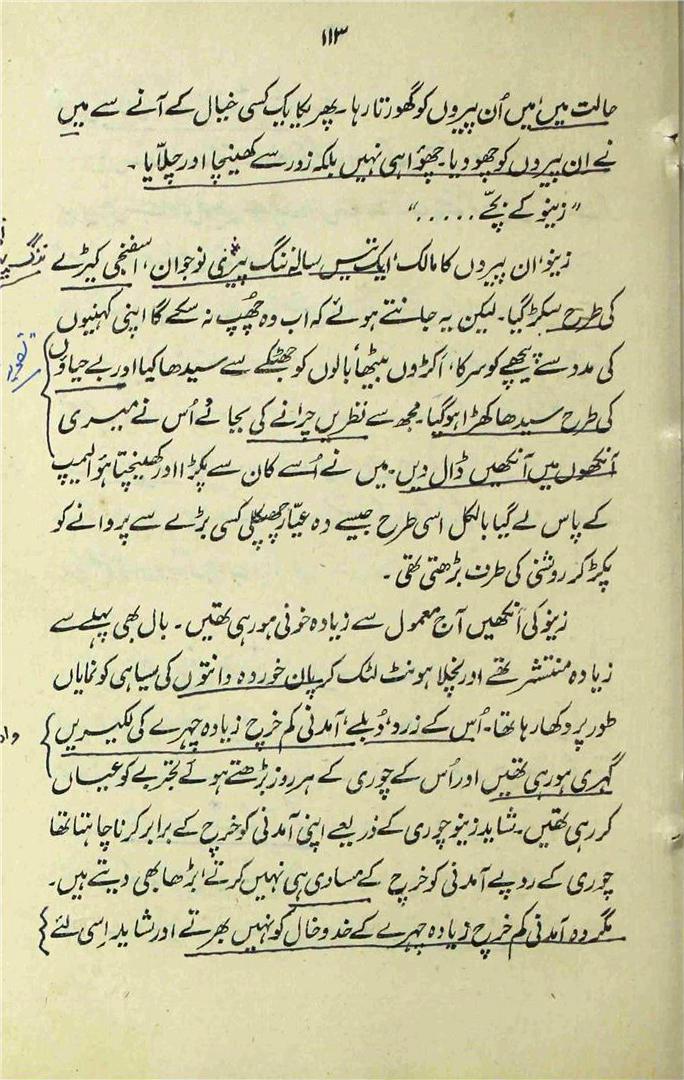 ۱۱۳
حالت میں، میں اُن پیروں کو گھورتا رہا۔ پھر یکایک کسی خیال کے آنے سے میں
نے ان پیروں کو چھو دیا۔ چھُوا ہی نہیں بلکہ زور سے کھینچا اور چلّایا ۔
”زینو کے بچّے . . . . .“
زینو، ان پیروں کا مالک، ایک تیس سالہ ننگ پیڑی نوجوان، اسفنجی کیڑے
کی طرح سکڑ گیا۔ لیکن یہ جانتے ہوئے کہ اب وہ چھُپ نہ سکے گا اپنی کہنیوں
کی مدد سے پیچھے کو سرکا، اکڑوں بیٹھا، بالوں کو جھٹکے سے سیدھا کیا اور بے حیاؤں
کی طرح سیدھا کھڑا ہو گیا۔ مجھ سے نظریں چرانے کی بجائے اُس نے میری
آنکھوں میں آنکھیں ڈال دیں۔ میں نے اُسے کان سے پکڑا اور کھینچتا ہؤا لیمپ
کے پاس لے گیا بالکل اسی طرح جیسے وہ عیّار چھپکلی کسی بڑے سے پروانے کو
پکڑ کر روشنی کی طرف بڑھتی تھی ۔
زینو کی آنکھیں آج معمول سے زیادہ خونی ہو رہی تھیں۔ بال بھی پہلے سے
زیادہ منتشر تھے اور نچلا ہونٹ لٹک کر پان خوردہ دانتوں کی سیاہی کو نمایاں
طور پر دکھا رہا تھا۔ اُس کے زرد، دُبلے، آمدنی کم خرچ زیادہ چہرے کی لکیریں
گہری ہو رہی تھیں اور اُس کے چوری کے ہر روز بڑھتے ہوئے تجربے کو عیاں
کر رہی تھیں۔ شاید زینو چوری کے ذریعے اپنی آمدنی کو خرچ کے برابر کرنا چاہتا تھا
چوری کے روپے آمدنی کو خرچ کے مساوی ہی نہیں کرتے، بڑھا بھی دیتے ہیں۔
مگر وہ آمدنی کم خرچ زیادہ چہرے کے خدوخال کو نہیں بھرتے اور شاید اِسی لئے